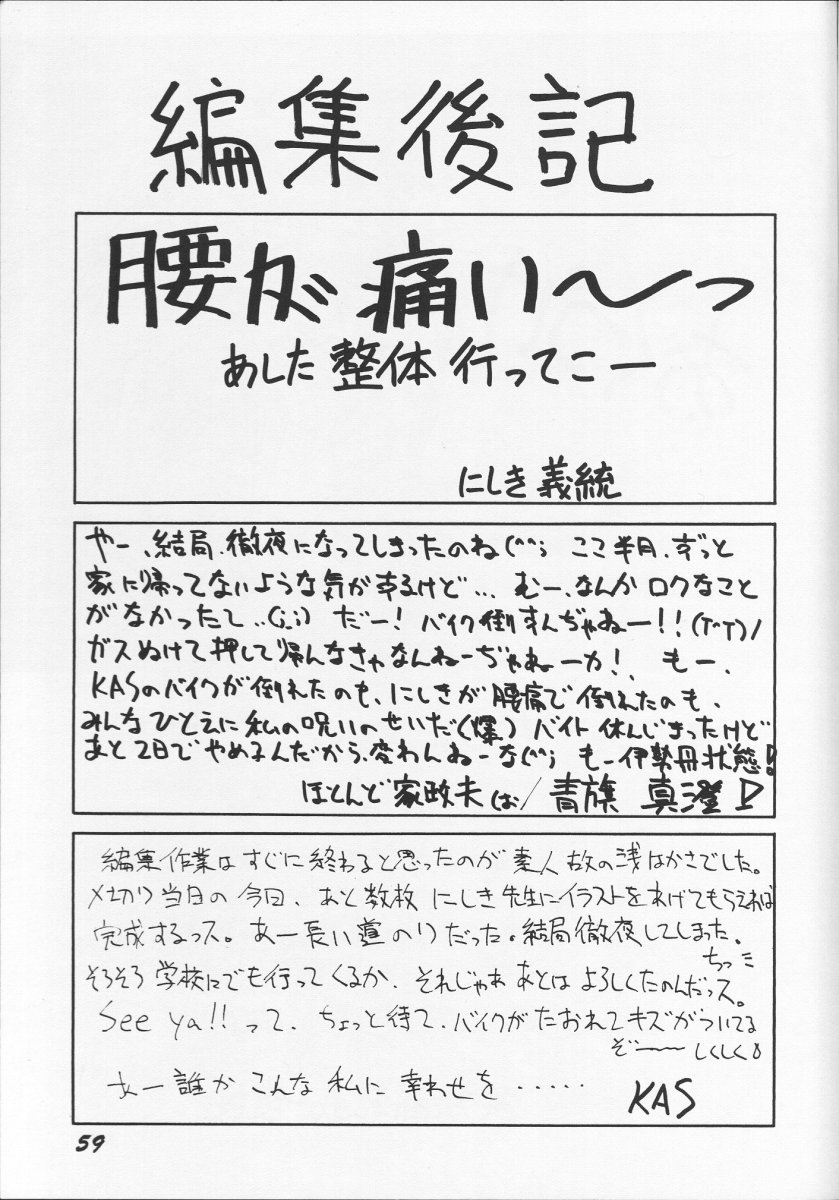 編集後記
腰が痛い〜っ
あした整体行ってこー
にしき義統
やー、結局、徹夜になってしまったのね(^^; ここ半月、ずっと
家に帰ってないような気がするけど… むー、なんかロクなこと
がなかったて..(;_;) だー! バイク倒すんぢゃねー!!(T^T)/
ガスぬけて押して帰んなきゃなんねーぢゃねーカ! もー、
KASのバイクが倒れたのも、にしきが腰痛で倒れたのも、
みんなひとえに私の呪いのせいだ(爆) バイト休んじまったけど
あと2日でやめるんだから、変わんねーな(^^; もー伊勢丹状態!
ほとんど家政夫(お/青旗 真澄
編集作業はすぐに終わると思ったのが素人故の浅はかさでした。
〆切り当日の今日、あと数枚にしき先生にイラストをあげてもらえれば
完成するっス。あー長い道のりだった。結局徹夜してしまった。
ちっミ
そろそろ学校にでも行ってくるか、それじゃああとはよろしくたのんだっス。
See ya!! って、ちょっと待て、バイクがたおれてキズがついてる
ぞ〜〜 しくしく
あー誰かこんな私に幸わせを・・・・・
KAS
59